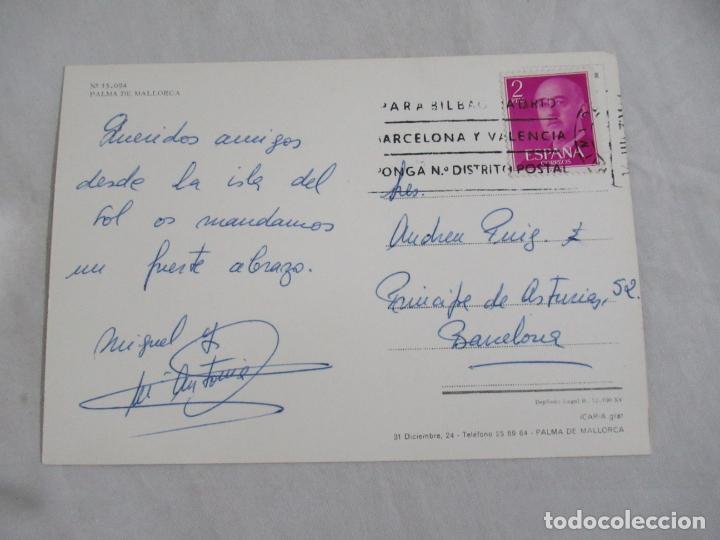 Nº 15.094
PALMA DE MALLORCA
Queridos amigos
desde la isla del
Sol os mandamos
un fuerte abrazo.
Miguel y
Mª Antonia
2
ESPAÑA
CORREOS
PARA BILBAO MADRID
BARCELONA Y VALENCIA
PONGA N.º DISTRITO POSTAL
Sres.
Andreu Puig.
Principe de Asturias, 52.
Barcelona
Depósito Legal B.
ICARIA graf
31 Diciembre, 24 - Teléfono 25 69 64 - PALMA DE MALLORCA
todocoleccion